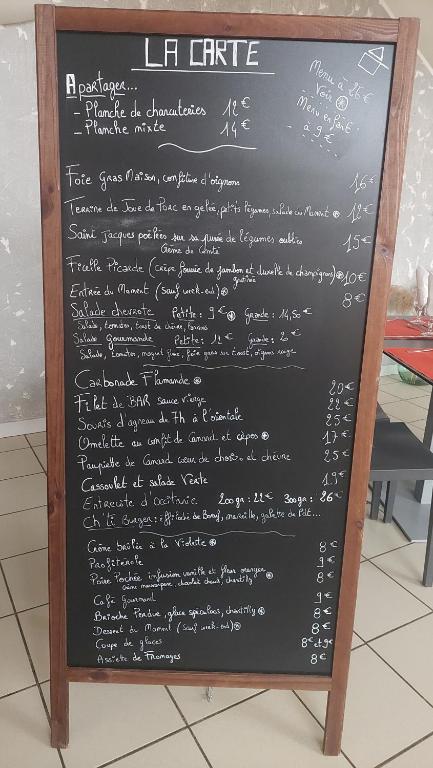 LA CARTE
Menu à 26€
Voir ⊛
Menu enfant
à 9€
A partager...
- Planche de charcuteries 12€
- Planche mixte 14€
Foie Gras Maison, confiture d'oignons 16€
Terrine de Joue de Porc en gelée, petits légumes, salade du Moment ⊛ 12€
Saint Jacques poêlées sur sa purée de légumes oubliés 15€
Crème de Comté
Ficelle Picarde (crêpe fourrée de jambon et duxelle de champignons) ⊛ 10€
gratinée
Entrée du Moment (sauf week-end) ⊛ 8€
Salade chevrote Petite : 9€ ⊛ Grande : 14,50€
Salade, tomates, toast de chèvre, lardons
Salade Gourmande Petite : 12€ Grande : 2 €
Salade, tomates, magret fumé, foie gras sur toast, oignons rouge
Carbonade Flamande ⊛ 20€
Filet de BAR sauce vierge 22€
Souris d'agneau de 7h à l'orientale 25€
Omelette au confit de Canard et cèpes ⊛ 17€
Paupiette de Canard cœur de chorizo et chèvre 25€
Cassoulet et salade Verte 19€
Entrecôte d'Occitanie 200gr : 22€ 300gr : 26€
Ch'ti Burger : effiloché de Boeuf, maroille, galette de Pdt...
Crème brûlée à la Violette ⊛ 8€
Profiterole 9€
Poire Pochée infusion vanille et fleur oranger ⊛ 8€
crème mascarpone, chocolat chaud, chantilly
Café Gourmand 9€
Brioche Perdue, glace spéculoos, chantilly ⊛ 8€
Dessert du Moment (sauf week-end) ⊛ 8€
Coupe de glaces 8€ et 9€
Assiette de Fromages 8€